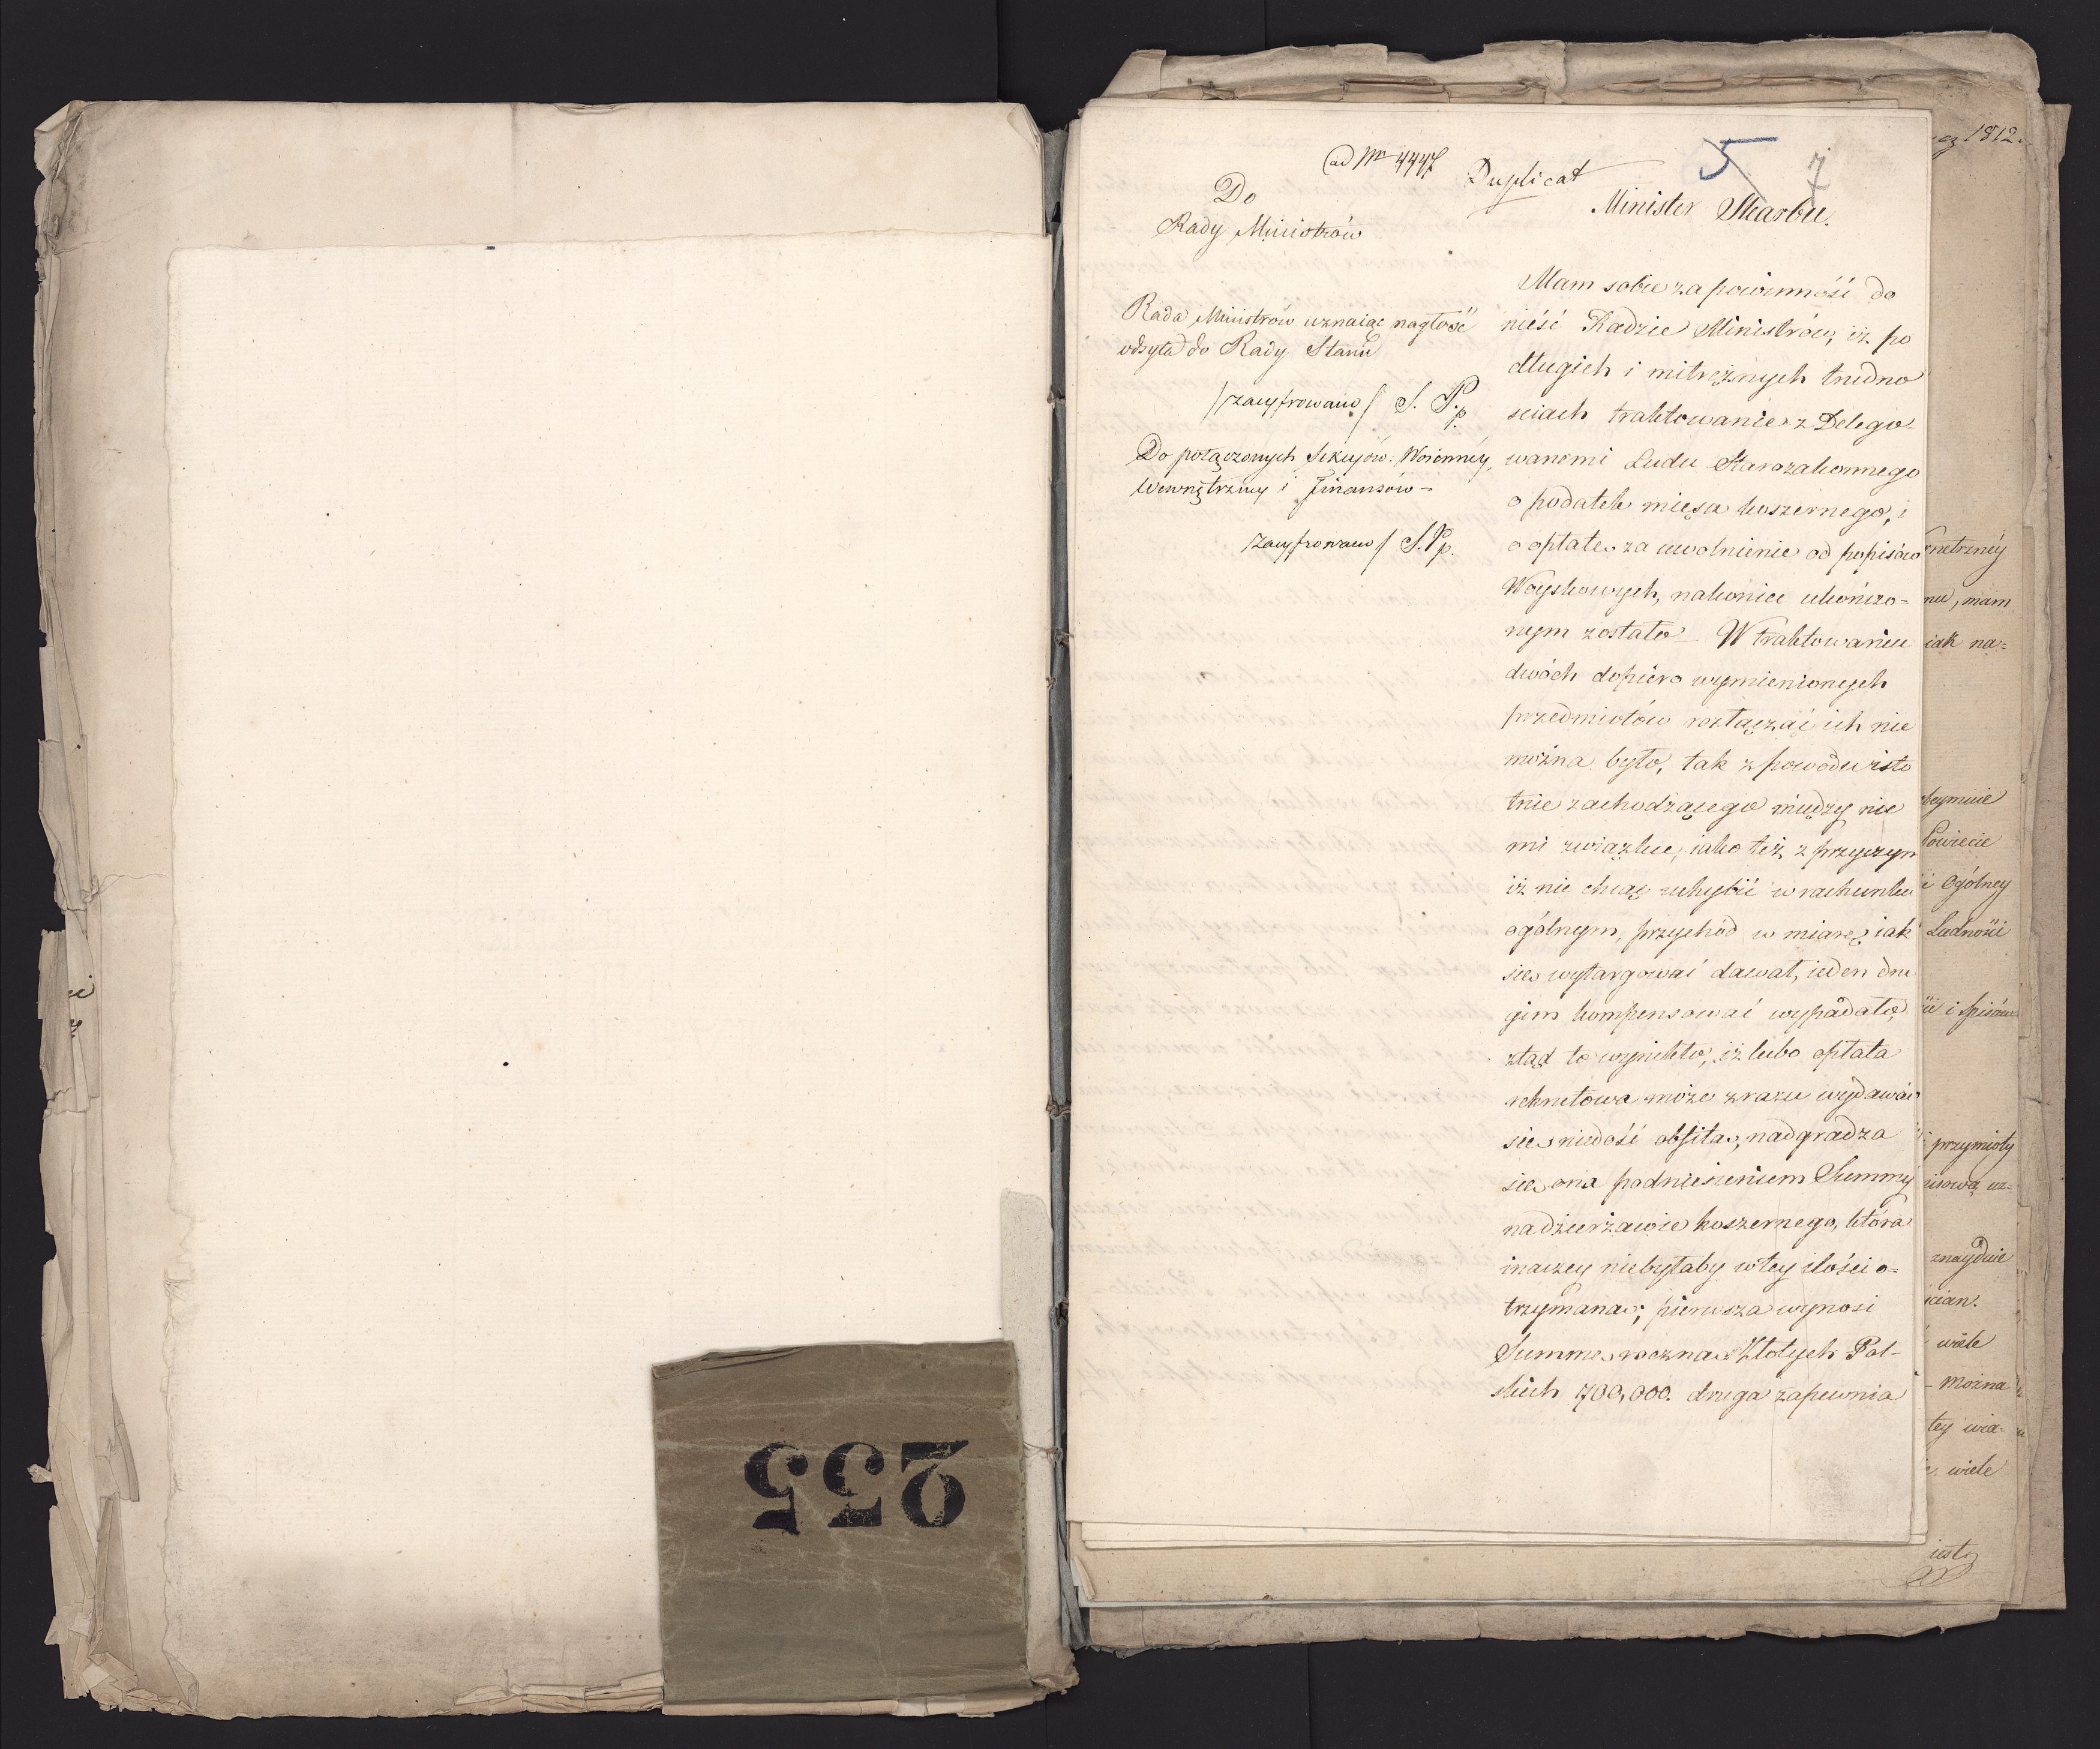 ad Nr 4447
Duplicat
5 7
Do
Rady Ministrów
Minister Skarbu.
Rada Ministrów uznaiąc nagłość
odsyła do Rady Stanu
/zacyfrowano/ S. P.p.
Do połączonych Sekcyów: Woienney,
Wewnętrzney i Finansów –
/zacyfrowano/ S. Pp.
Mam sobie za powinność do
nieść Radzie Ministrów, iż po
długich i mitrężnych trudno
sciach traktowanie z Delego-
wanemi Ludu Starozakonnego
o podatek mięsa koszernego, i
o opłatę za uwolnienie od popisów
Woyskowych, nakoniec ukończo=
nym zostało – W traktowaniu
dwóch dopiero wymienionych
przedmiotów rozłączać ich nie
można było, tak z powodu isto
tnie zachodzącego między nie
mi związku, iako też z przyczyn
iż nie chcąc uchybić w rachunku
ogólnym, przychód w miarę iak
się wytargować dawał, ieden dru
gim kompensować wypadało,
ztąd to wynikło, iż lubo opłata
rekrutowa może zrazu wydawać
się niedość obfita, nadgradza
się ona podniesieniem Summy
na dzierżawie koszernego, która
inaczey niebyłaby w tey ilości o=
trzymana; pierwsza wynosi
Summę roczną Złotych Pol-
skich 700,000. druga zapewnia
1812.
nętrzney
nu, mam
iak na=
beymuie
Powiecie
i Ogólney
Ludności
i spisów
przymioty
uz=
znayduie
ician.
wiele
Można
tey wia=
wiele
iest
235